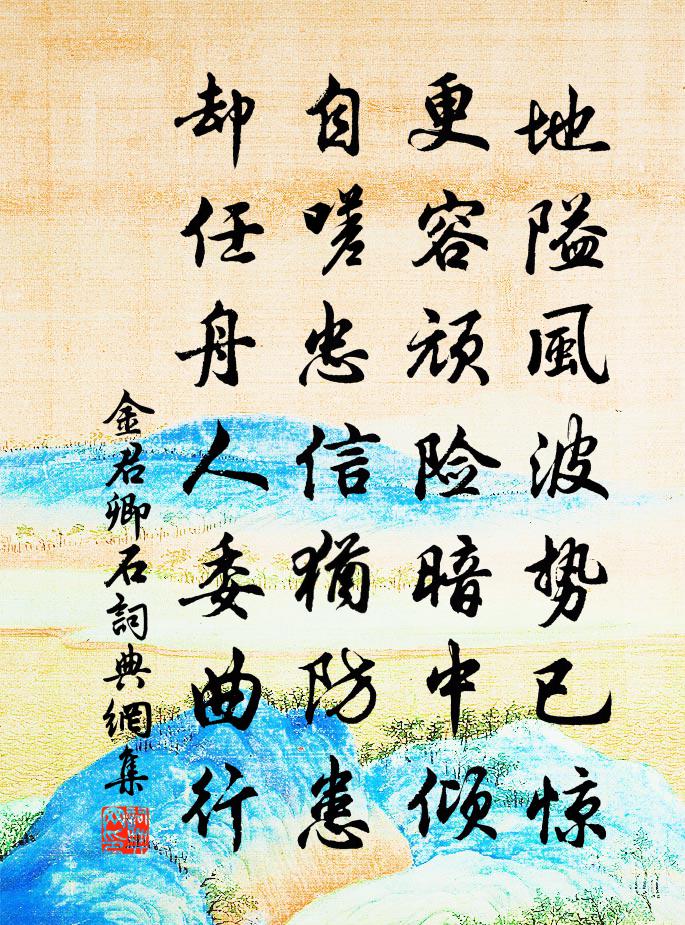 地隘風波势已惊
更容顽险暗中倾
自嗟忠信犹防患
却任舟人委曲行
金君卿石詞典網集